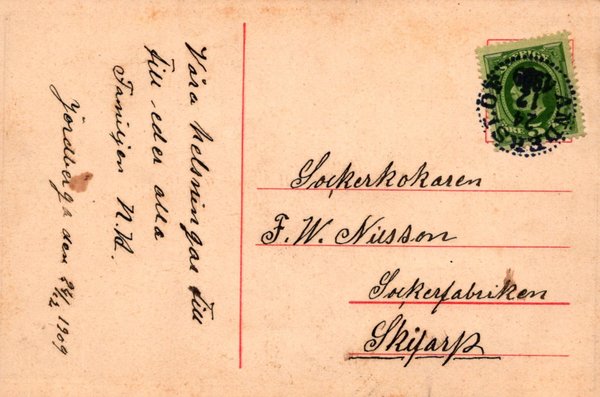 Våra Helsningar till
till eder alla
Familjen N. H.
Jordberga den 24/12 1909
Sockerkokaren
F. W. Nilsson
Sockerfabriken
Skifarp
ANDERSLÖV
24
12
ÖRE 5